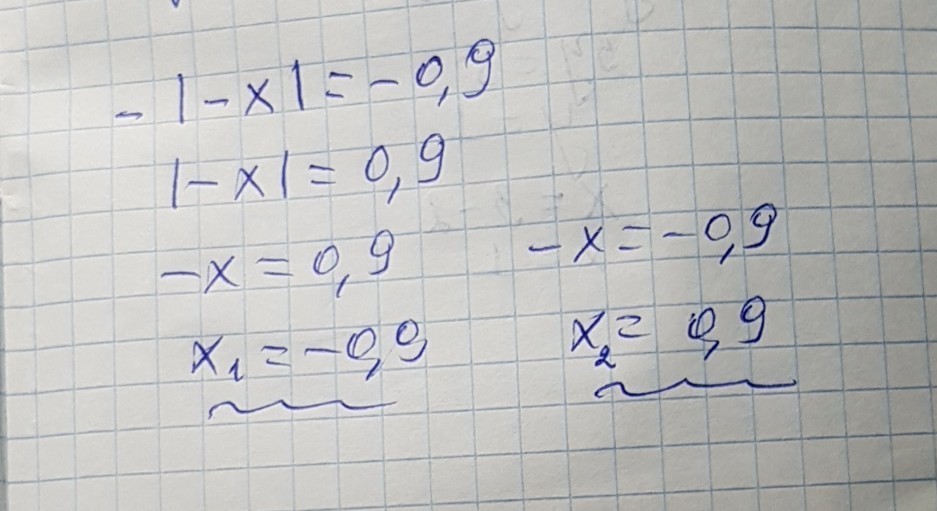 -|-x|=-0,9
|-x|=0,9
-x=0,9 -x=-0,9
x₁=-0,9 x₂=0,9